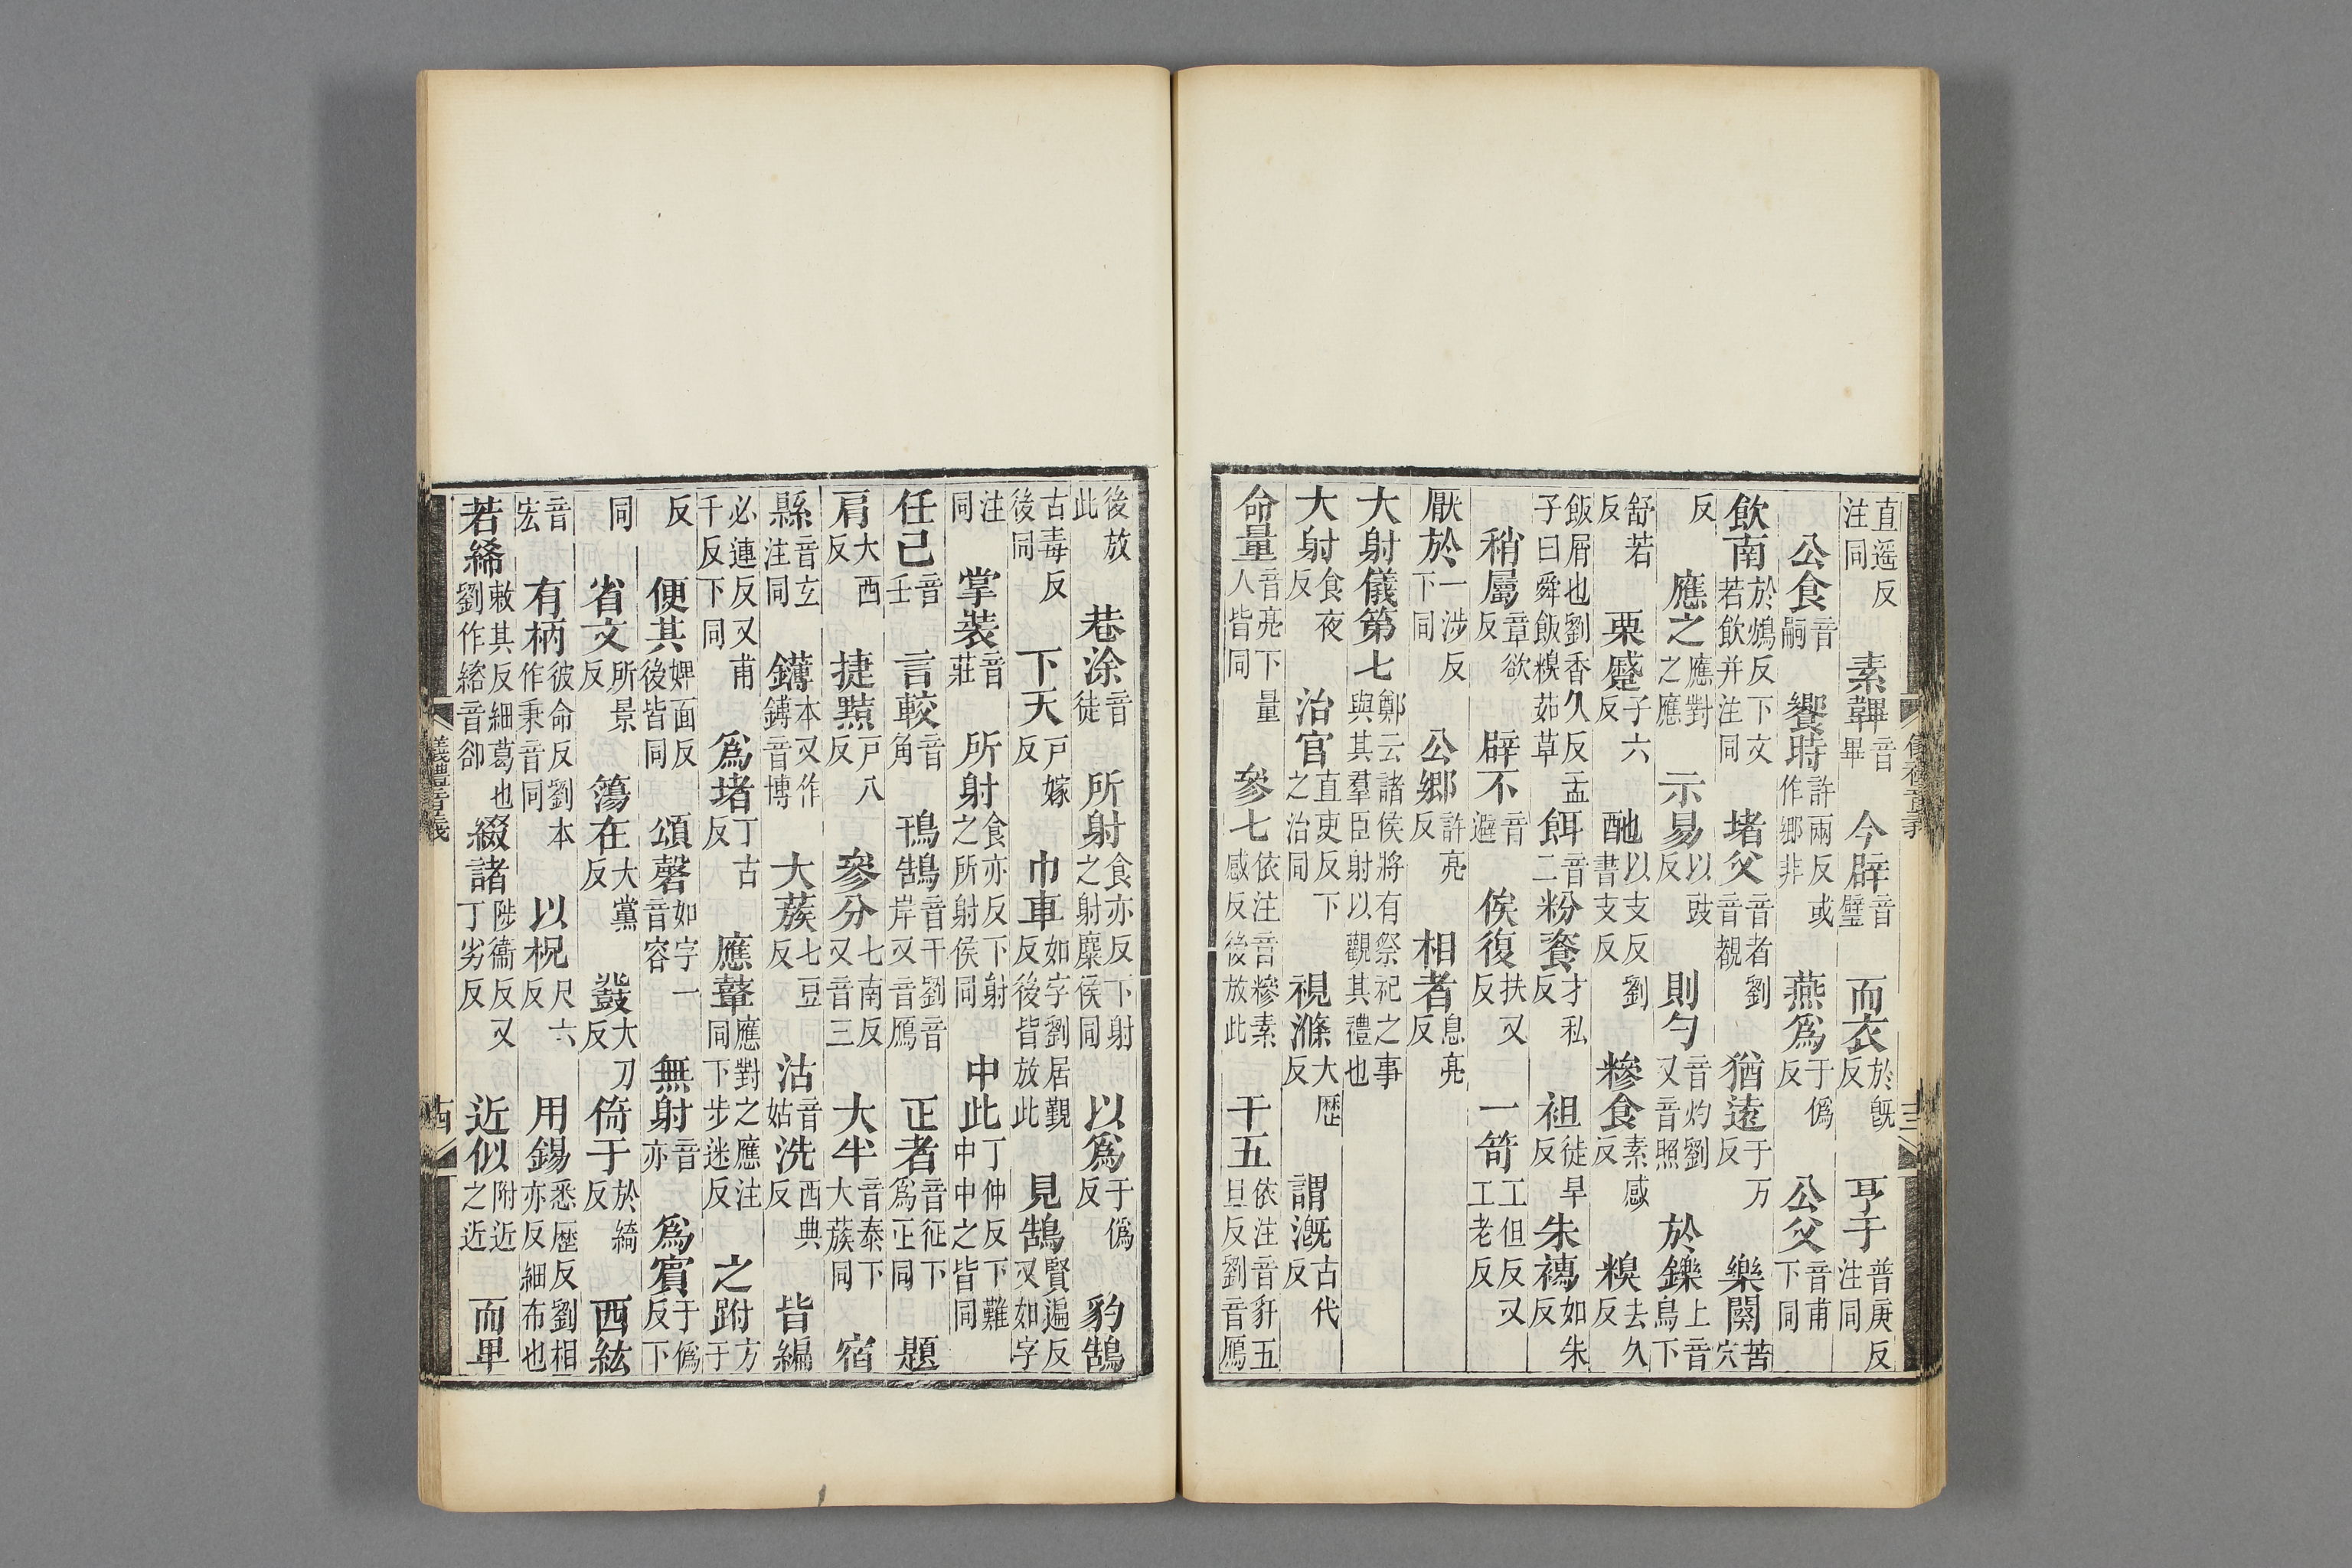 直遥反注同 素韠音畢 今辟音璧 而衣於旣反 亨于普庚反注同
公食音嗣 饗時許兩反或作鄉非 燕爲于僞反 公父音甫下同
飲南於鴆反下文若飲并注同 堵父音者劉音覩 猶遠于万反 樂闋苦穴
反 應之應對之應 示易以豉反 則勺音灼劉又音照 於鑠上音烏下
舒若反 栗蹙子六反 酏以支反劉書支反 糝食素感反 糗去久反
飯屑也劉香久反孟子曰舜飯糗茹草 餌音二 粉餈才私反 袒徒旱反 朱襦如朱反
稍屬章欲反 辟不音避 俟復扶又反 一笴工但反又工老反
厭於一涉反下同 公鄉許亮反 相者息亮反
大射儀第七鄭云諸侯將有祭祀之事與其羣臣射以觀其禮也
大射食夜反 治官直吏反下之治同 視滌大歷反 謂漑古代反
命量音亮下量人皆同 參七依注音糝素感反後放此 干五依注音豻五旦反劉音鴈
儀禮音義
十三
後放此 巷涂音徒 所射食亦反下射之射麋侯同 以爲于僞反 豹鵠
古毒反後同 下天戸嫁反 巾車如字劉居覲反後皆放此 見鵠賢遍反又如字
注同 掌裝音莊 所射食亦反下射之所射侯同 中此丁仲反下難中中之皆同
任己音壬 言較音角 鳱鵠音干劉音岸又音鴈 正者音征下爲正同 題
肩大西反 捷黠戸八反 參分七南反又音三 大半音泰下大蔟同 宿
縣音玄注同 鑮本又作鎛音博 大蔟七豆反 沽音姑 洗西典反 皆編
必連反又甫千反下同 爲堵丁古反 應鼙應對之應注同下步迷反 之跗方于
反 便其婢面反後皆同 頌磬如字一音容 無射音亦 爲賓于僞反下
同 省文所景反 簜在大黨反 鼗大刀反 倚于於綺反 西紘
音宏 有柄彼命反劉本作秉音同 以柷尺六反 用錫悉歷反劉相亦反細布也
若絺敕其反細葛也劉作綌音卻 綴諸陟衞反又丁劣反 近似附近之近 而畢
儀禮音義